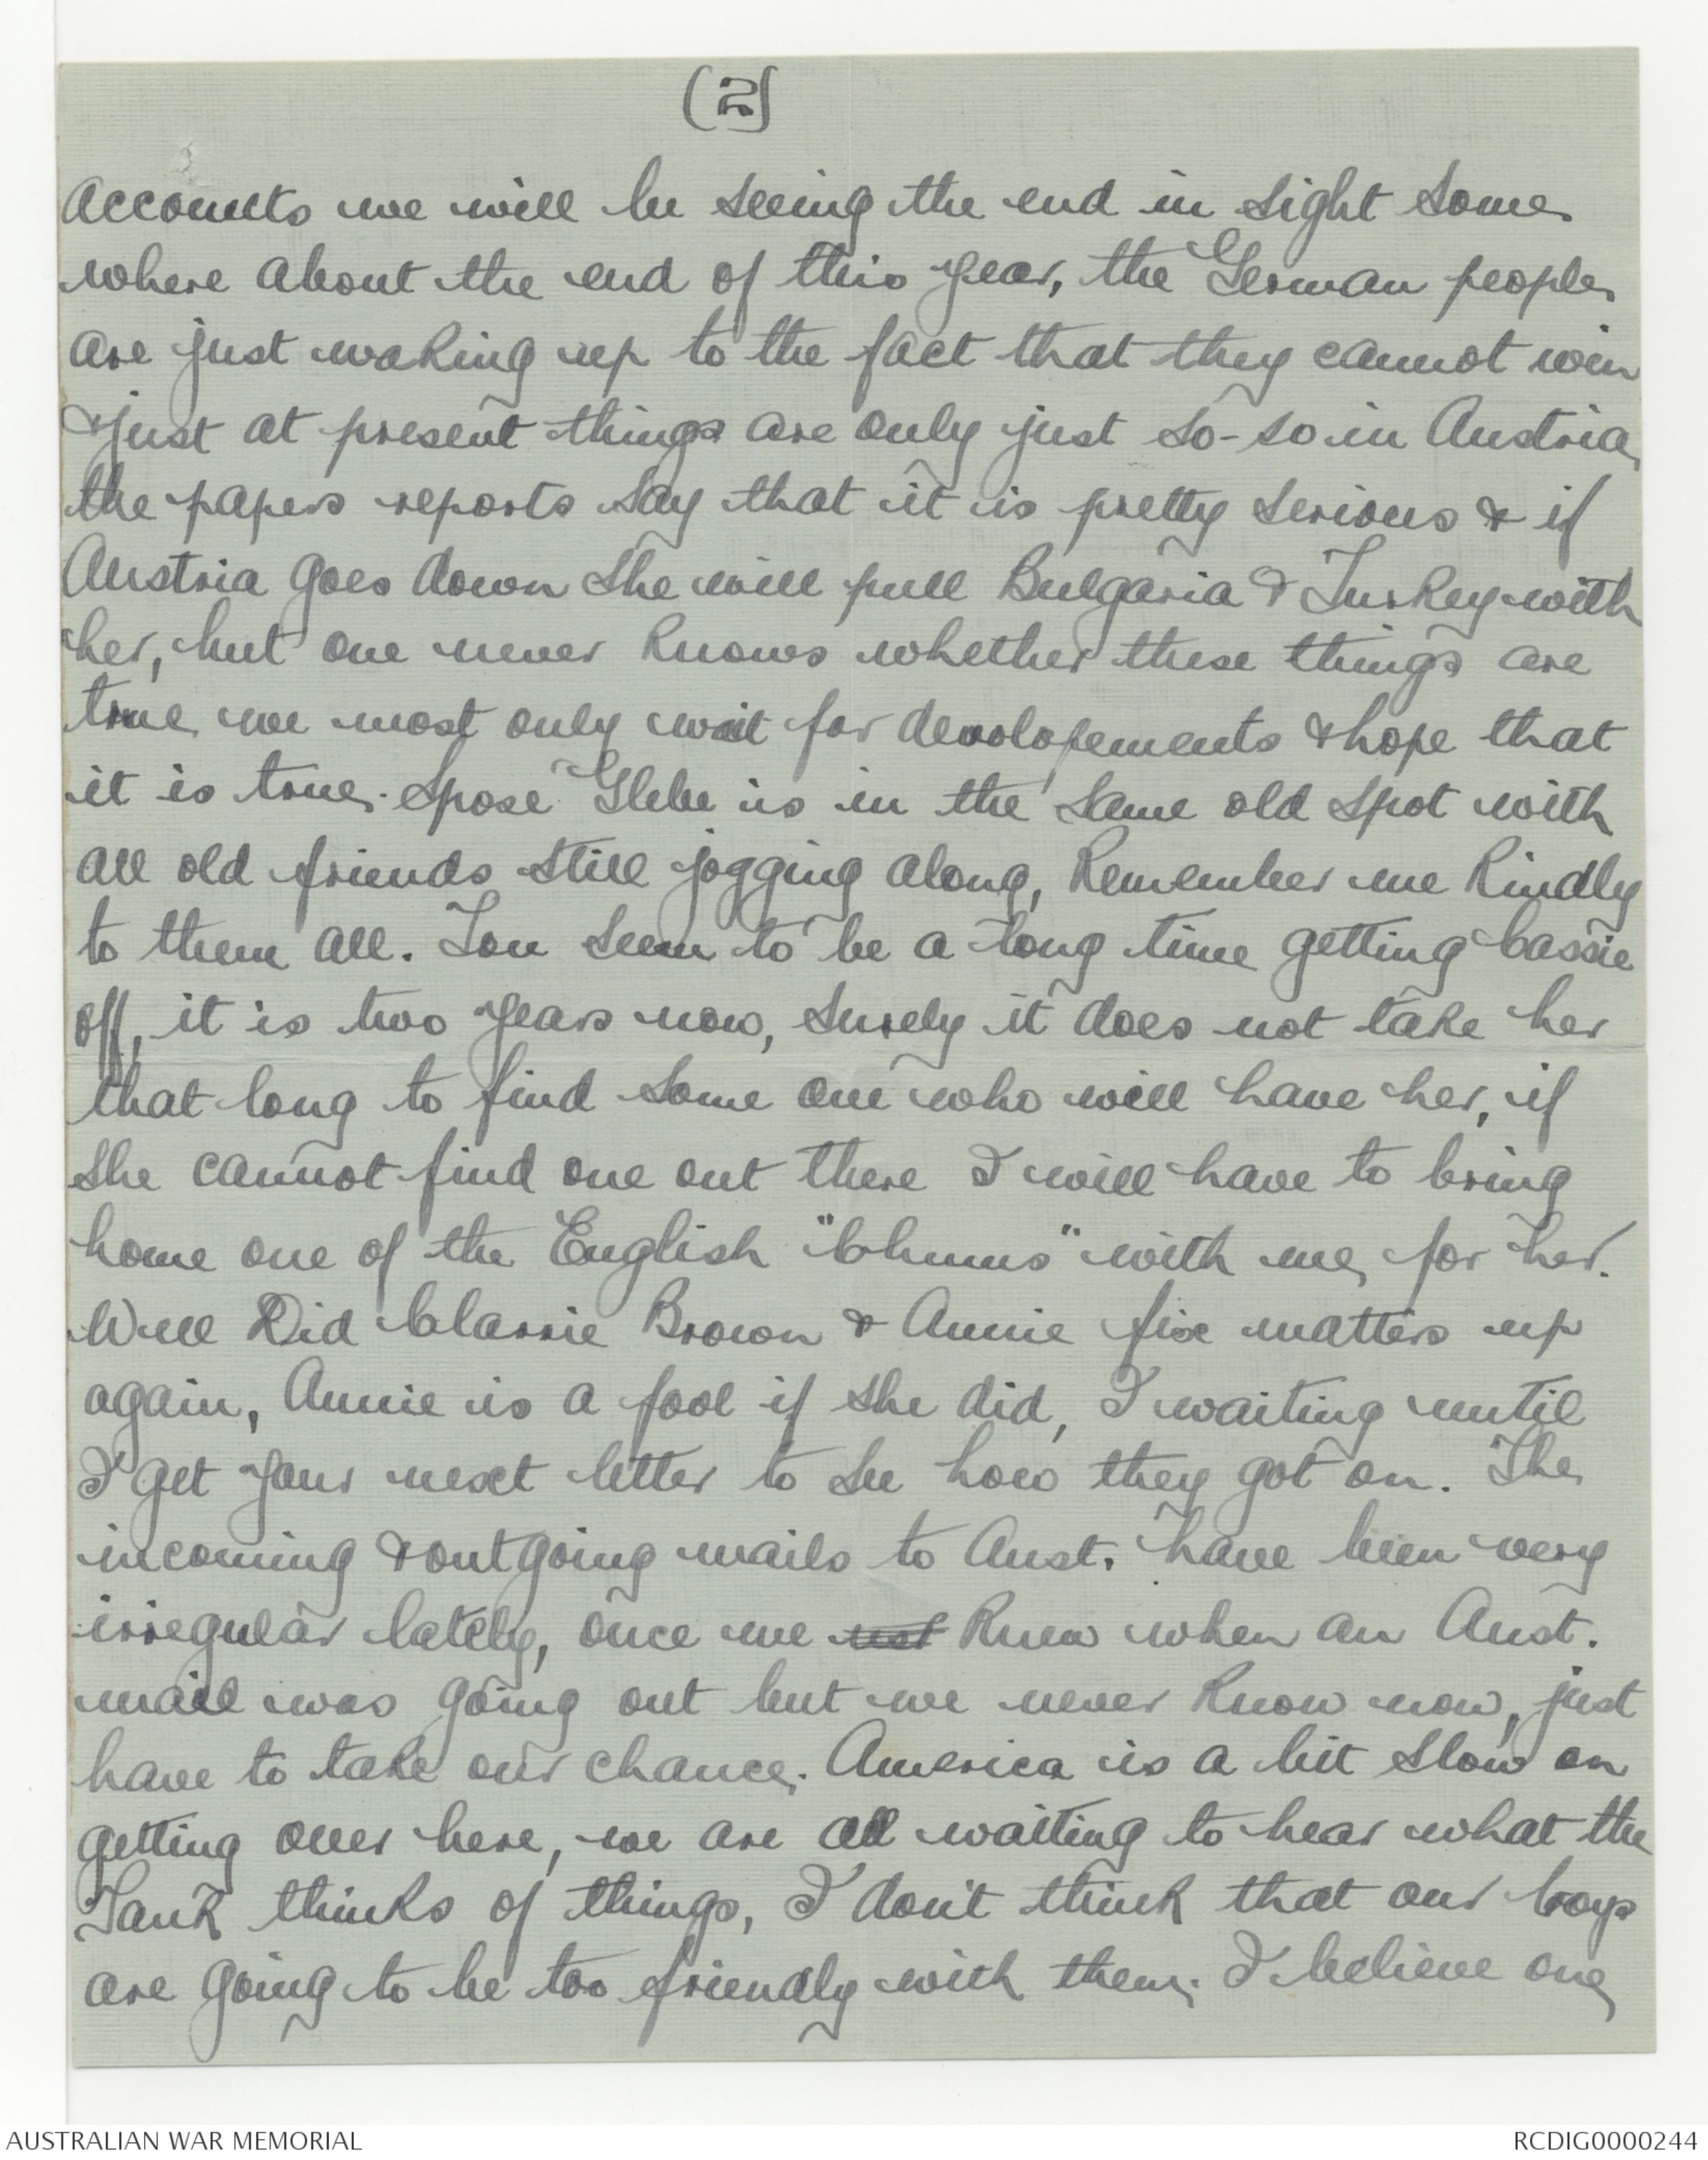 (2)
accounts we will be seeing the end in sight some
where about the end of this year, the German people
are just waking up to the fact that they cannot win
& just at present things are only just so-so in Austria,
the papers reports say that it is pretty serious & if
Austria goes down she will pull Bulgaria & Turkey with
her, but one never knows whether these things are
true we most only wait for devolopements & hope that
it is true. Spose Glebe is in the same old spot with
all old friends still jogging along, Remember me kindly
to them all. You seem to be a long time getting Cassie
off, it is two years now, surely it does not take her
that long to find some one who will have her, if
she cannot find one out there I will have to bring
home one of the English "Chums" with me, for her.
Well Did Clarrie Brown & Annie fix matters up
again, Annie is a fool if she did, I waiting until
I get your next letter to see how they got on. The
incoming & outgoing mails to Aust. have been very
irregular lately, once we knew when an Aust.
mail was going out but we never know now, just
have to take our chance. America is a bit slow on
getting over here, we are all waiting to hear what the
Yank thinks of things, I don't think that our boys
are going to be too friendly with them. I believe one
AUSTRALIAN WAR MEMORIAL
RCDIG0000244